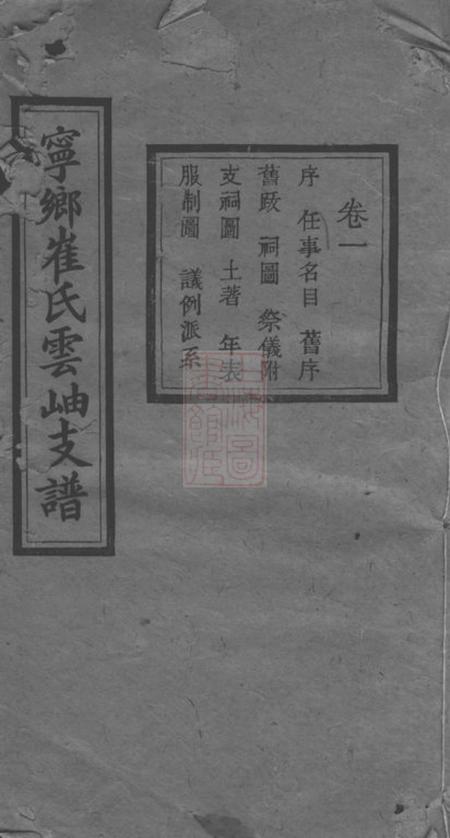 寧鄉崔氏雲岫支譜
卷一
序 任事名目 舊序
舊跋 祠圖 祭儀附
支祠圖 土著 年表
服制圖 議例派系